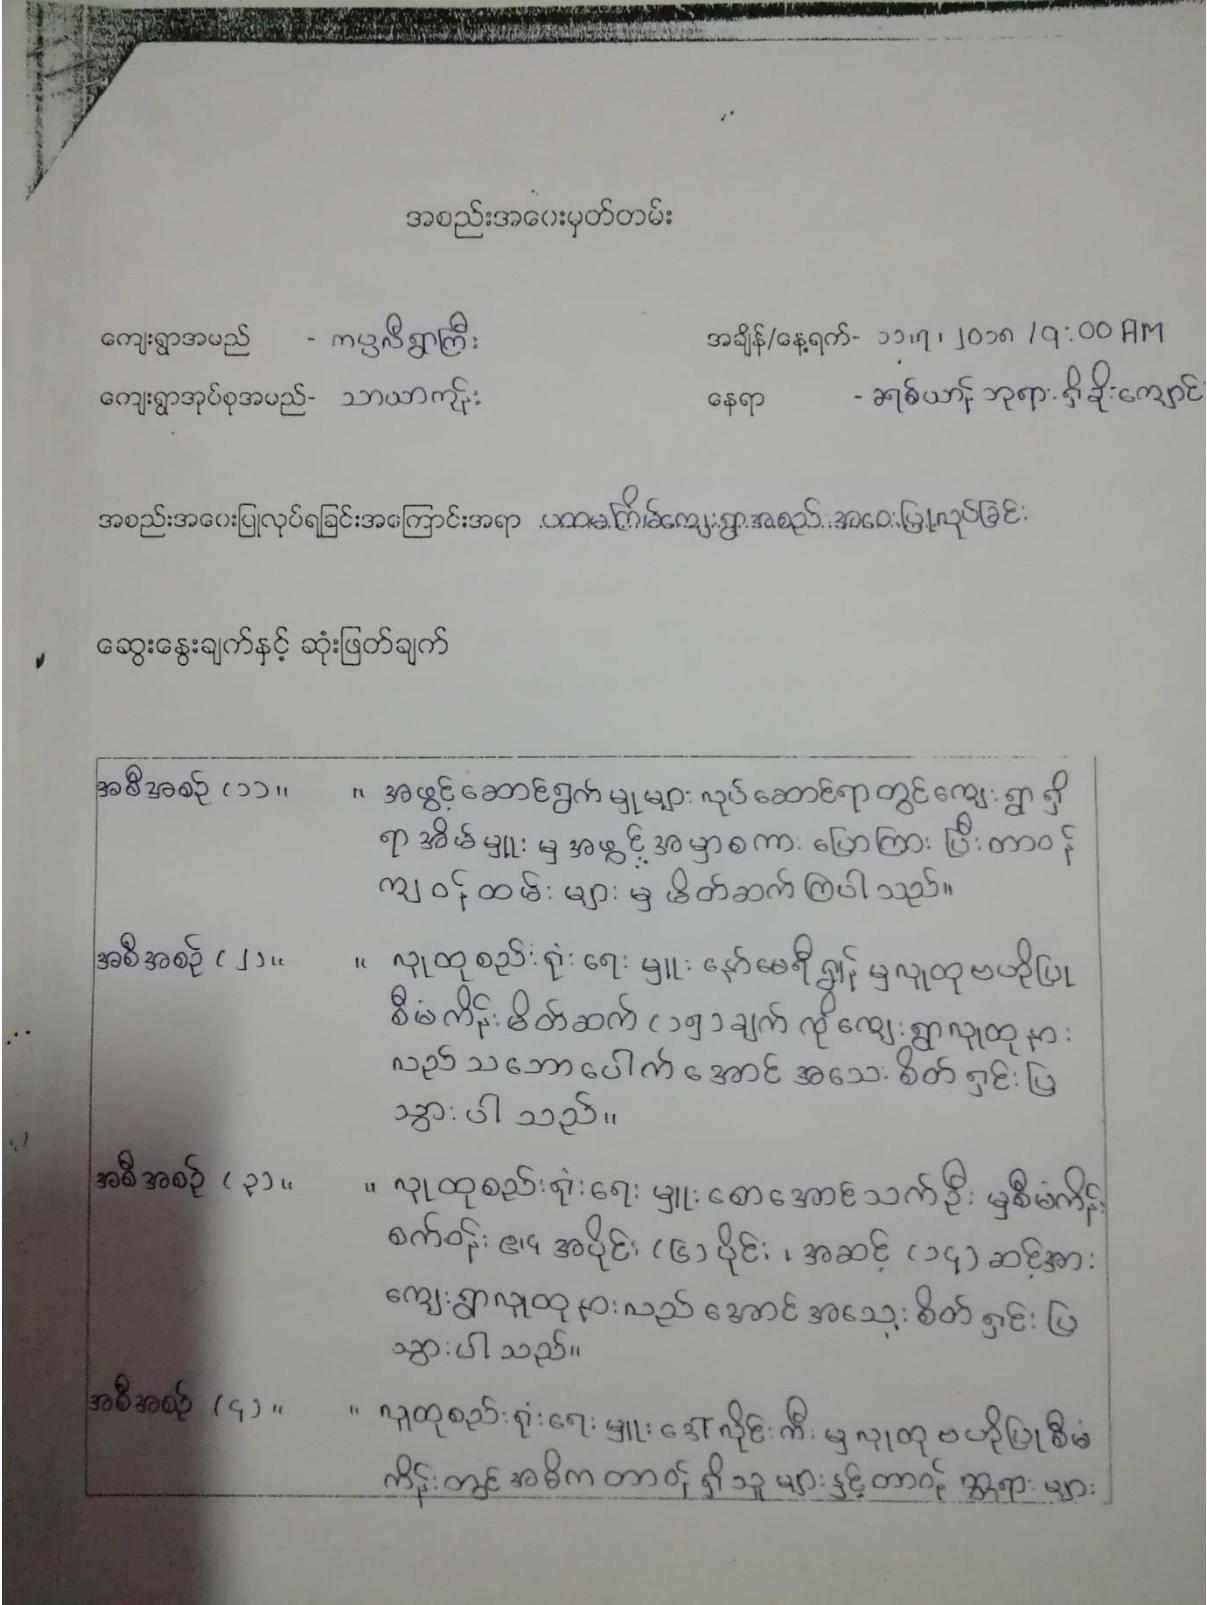 အစည်းအဝေးမှတ်တမ်း
ကျေးရွာအမည် - ကမ္ဗလီရွာကြီး
အချိန်/နေ့ရက်- ၁၁.၇.၂၀၁၈ /၇:00 AM
ကျေးရွာအုပ်စုအမည်- သာယာကုန်း
နေရာ - ခရစ်ယာန် ဘုရား ရှိ ခိုးကျောင်း
အစည်းအဝေးပြုလုပ်ရခြင်းအကြောင်းအရာ ပထမကြိမ်ကျေးရွာအစည်းအဝေးပြုလုပ်ခြင်း
ဆွေးနွေးချက်နှင့် ဆုံးဖြတ်ချက်
အစီအစဉ် (၁)။ ။ အဖွင့်ဆောင်ရွက်မှုများ လုပ်ဆောင်ရာတွင်ကျေးရွာ ရှိ
ရာအိမ်မှူး မှ အဖွင့်အမှာစကား ပြောကြား ပြီး တာဝန်
ကျ ဝန်ထမ်း များ မှ မိတ်ဆက် ကြပါသည်။
အစီအစဉ် (၂)။ ။ လူထုစည်းရုံးရေး မှူး နော်မေရီရွှန် မှလူထုဗဟိုပြု
စီမံကိန်းမိတ်ဆက် (၁၅)ချက် ကိုကျေးရွာလူထုနား
လည် သဘောပေါက် အောင် အသေးစိတ် ရှင်းပြ
သွားပါ သည်။
အစီအစဉ် (၃)။ ။ လူထုစည်းရုံးရေး မှူး စောအောင်သက်ဦး မှစီမံကိန်း
စက်ဝန်း ၏ အပိုင်း (၆)ပိုင်း ၊ အဆင့် (၁၄) ဆင့်အား
ကျေးရွာလူထုနားလည် အောင် အသေးစိတ် ရှင်းပြ
သွားပါသည်။
အစီအစဉ် (၄)။ ။ လူထုစည်းရုံးရေး မှူး ဒေါ်လှိုင်းကီး မှ လူထု ဗဟိုပြုစီမံ
ကိန်းတွင် အဓိက တာဝန် ရှိသူ များနှင့်တာဝန် ဝတ္တရား များ